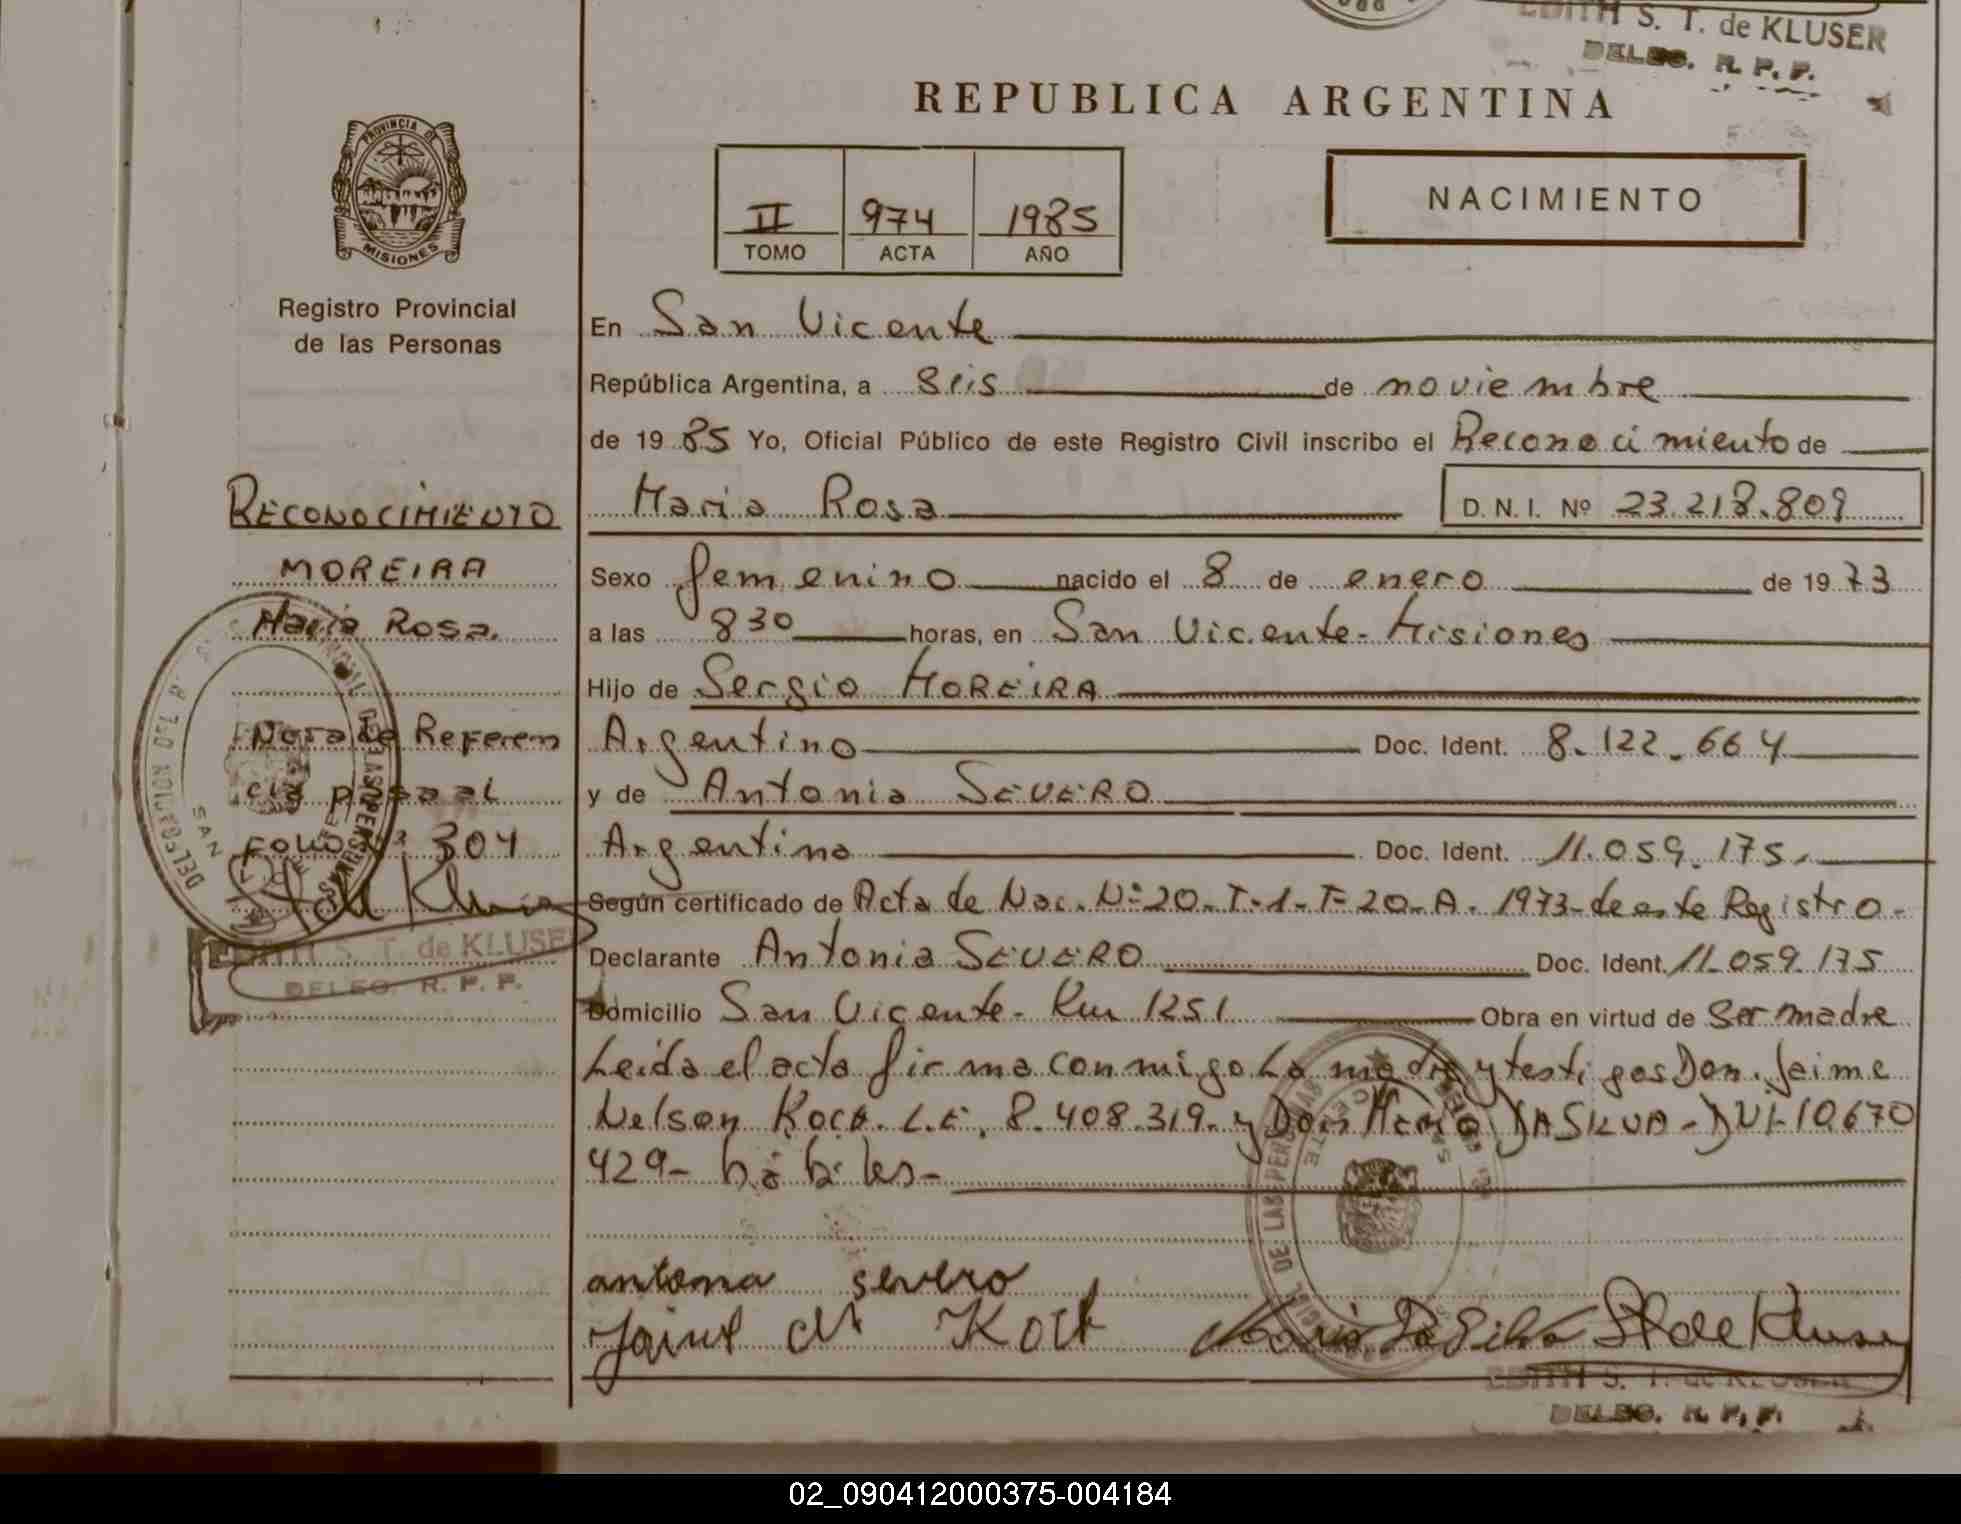 EDITH S. T. de KLUSER
DELEG. R. P. P.
REPUBLICA ARGENTINA
PROVINCIA DE
MISIONES
Registro Provincial
de las Personas
II 974 1985
TOMO ACTA AÑO
NACIMIENTO
En San Vicente
República Argentina, a seis de noviembre
de 1985 Yo, Oficial Público de este Registro Civil inscribo el Reconocimiento de
Maria Rosa D. N. I. Nº 23.218.809
Sexo femenino nacido el 8 de enero de 1973
a las 830 horas, en San Vicente-Misiones
Hijo de Sergio MOREIRA
Argentino Doc. Ident. 8.122.664
y de Antonia SEVERO
Argentina Doc. Ident. 11.059.175.
Según certificado de Acta de Nac. Nº20-T-1-F-20-A. 1973-de este Registro-
Declarante Antonia SEVERO Doc. Ident. 11.059.175
Domicilio San Vicente- Km 1251 Obra en virtud de ser madre
Leida el acta firma conmigo La madre y testigos Don. Jaime
Nelson Koch. L.E. 8.408.319. y Don Mario DASILVA-DNI-10.670
429- hábiles-
antonia severo
Koch
St de Kluser
EDITH S. T. de KLUSER
DELEG. R. P. P.
RECONOCIMIENTO
MOREIRA
Maria Rosa.
Nota de Referen
cia pasa al
Folio Nº 304
St de Kluser
EDITH S. T. de KLUSER
DELEG. R. P. P.
02_090412000375-004184